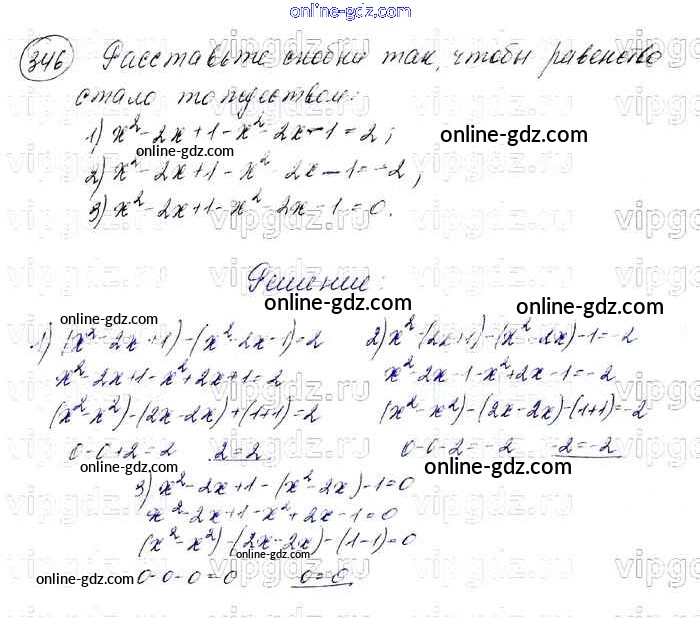 online-gdz.com
346 Расставьте скобки так, чтобы равенство
стало тождеством:
1) x²-2x+1-x²-2x-1=2;
online-gdz.com
online-gdz.com
2) x²-2x+1-x²-2x-1=-2;
3) x²-2x+1-x²-2x-1=0.
online-gdz.com
online-gdz.com
Решение:
online-gdz.com
online-gdz.com
online-gdz.com
1) (x²-2x+1)-(x²-2x-1)=2
2) x²-(2x+1)-(x²-2x)-1=-2
x²-2x+1-x²+2x+1=2
x²-2x-1-x²+2x-1=-2
(x²-x²)-(2x-2x)+(1+1)=2
(x²-x²)-(2x-2x)-(1+1)=-2
0-0+2=2 2=2
0-0-2=-2 -2=-2
online-gdz.com
online-gdz.com
3) x²-2x+1-(x²-2x)-1=0
x²-2x+1-x²+2x-1=0
(x²-x²)-(2x-2x)-(1-1)=0
online-gdz.com
online-gdz.com
0-0-0=0 0=0
online-gdz.com
vipgdz.ru